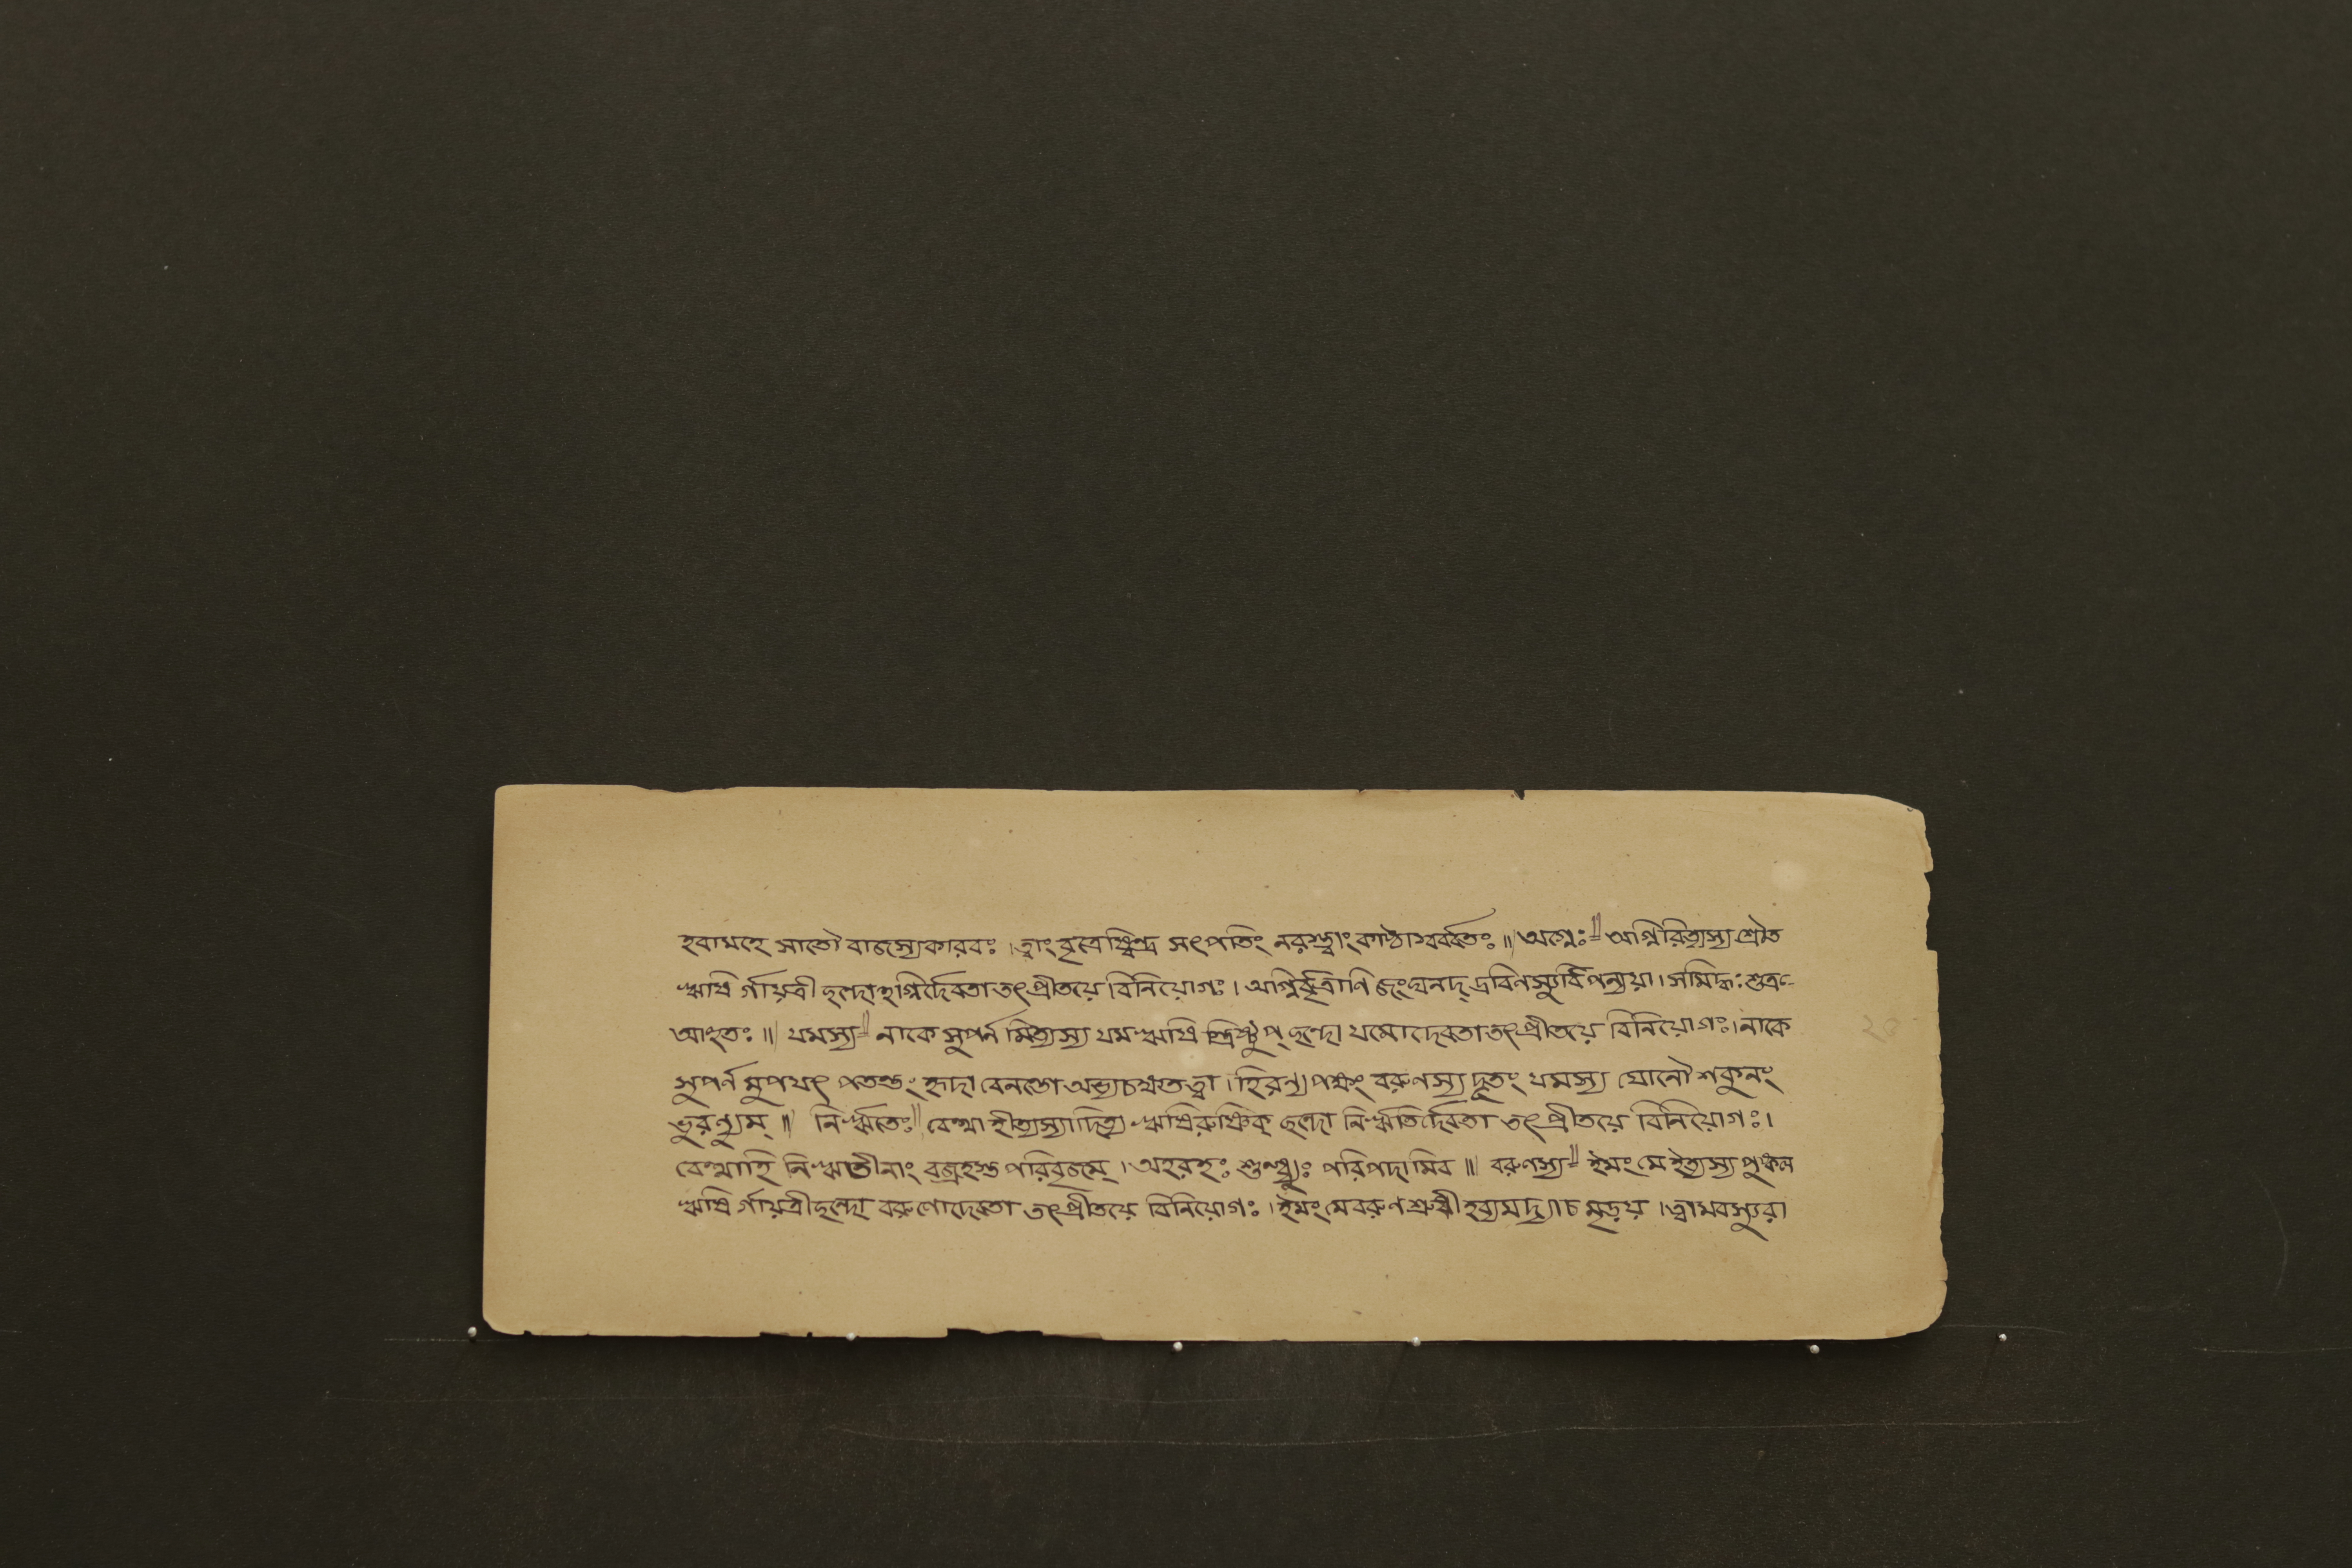 হবামহে সাতৌ বাজস্যকারবঃ। ত্বাং বৃত্রেষ্বিন্দ্র সৎপতিং নরস্ত্বাং কাষ্ঠাস্বর্ব্বতঃ॥ অগ্নেঃ॥ অগ্নিরিত্যস্য শ্রৌত
ঋষি র্গায়ত্রী ছন্দোহগ্নির্দেবতা তৎপ্রীতয়ে বিনিয়োগঃ। অগ্নির্বৃত্রাণি জংঘনদ্ দ্রবিণস্যুর্বিপন্যয়া। সমিদ্ধঃ শুক্র-
আহুতঃ॥ যমস্য॥ নাকে সুপর্ন মিত্যস্য যম ঋষি স্ত্রিষ্টুপ্ ছন্দো যমোদেবতা তৎপ্রীতয়ে বিনিয়োগঃ। নাকে
সুপর্ন মুপযৎ পতন্তং হৃদা বেনন্তো অভ্যচক্ষতত্বা। হিরণ্যপক্ষং বরুণস্য দূতং যমস্য যোনৌ শকুনং
ভুরণ্যুম্॥ নির্ঋতেঃ॥ বেত্থাহীত্যস্যাদিত্য ঋষিরুষ্ণিক্ ছন্দো নির্ঋতির্দেবতা তৎপ্রীতয়ে বিনিয়োগঃ।
বেত্থাহি নির্ঋতীনাং বজ্রহস্ত পরিবৃজম্। অহরহঃ শুন্ধ্যুঃ পরিপদামিব॥ বরুণস্য॥ ইমং মে ইত্যস্য পুষ্কল
ঋষি র্গায়ত্রীছন্দো বরুণোদেবতা তৎপ্রীতয়ে বিনিয়োগঃ। ইমং মে বরুণ শ্রুধী হব্যমদ্যাচ মৃড়য়। ত্বামবস্যুরা
২০